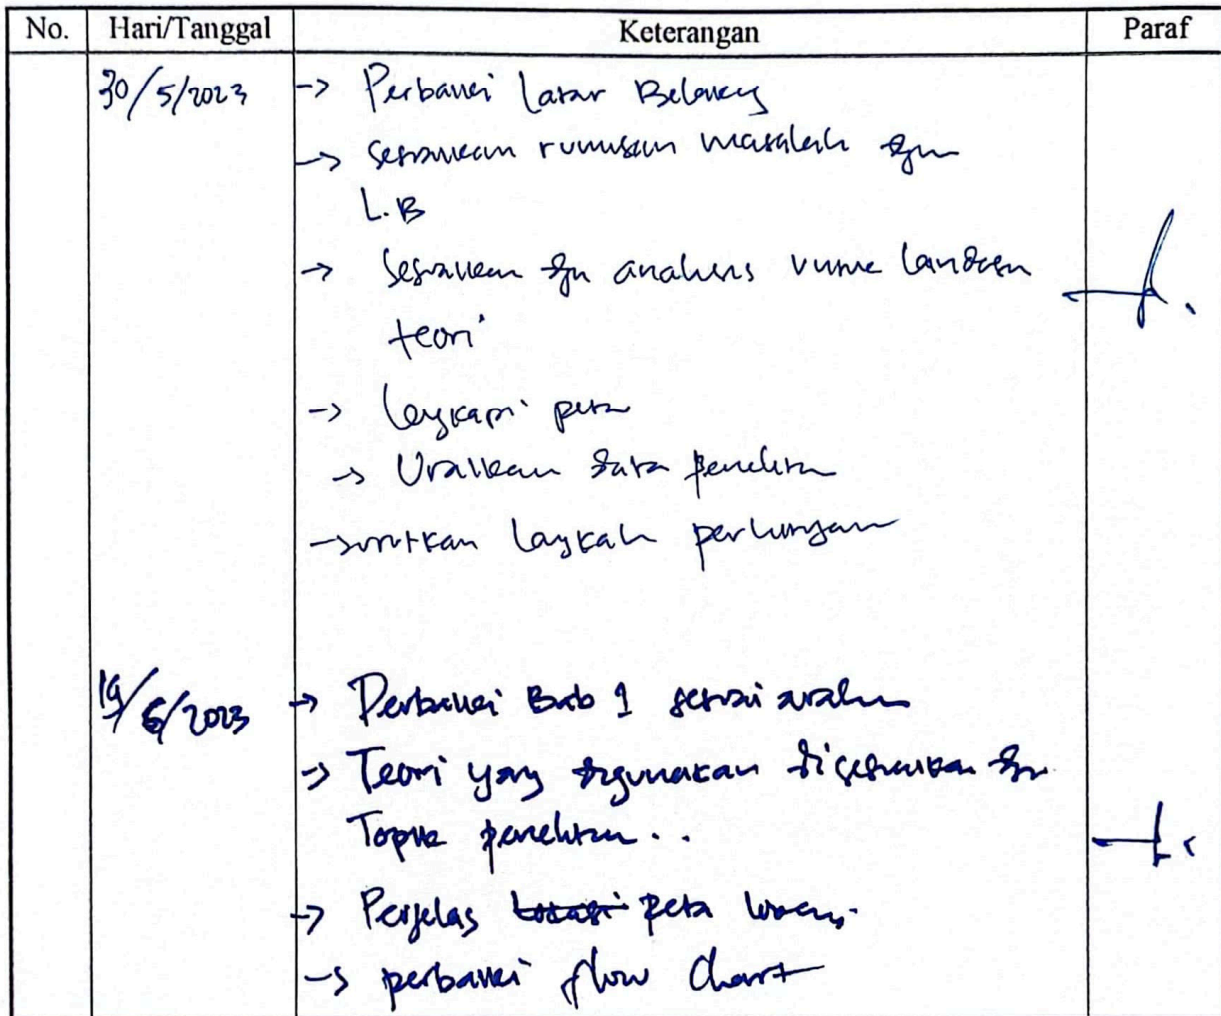 No. Hari/Tanggal Keterangan Paraf
30/5/2023 -> Perbaiki Latar Belakang
-> Sesuaikan rumusan masalah dgn
L.B
-> Sesuaikan dgn analisis untuk landasan
teori
-> Lengkapi peta
-> Uraikan data penelitian
-> urutkan langkah perhitungan
19/6/2023 -> Perbaiki Bab 1 sesuai arahan
-> Teori yang digunakan disesuaikan dgn
Topik penelitian . .
-> Perjelas Lokasi peta lokasi.
-> perbaiki flow Chart